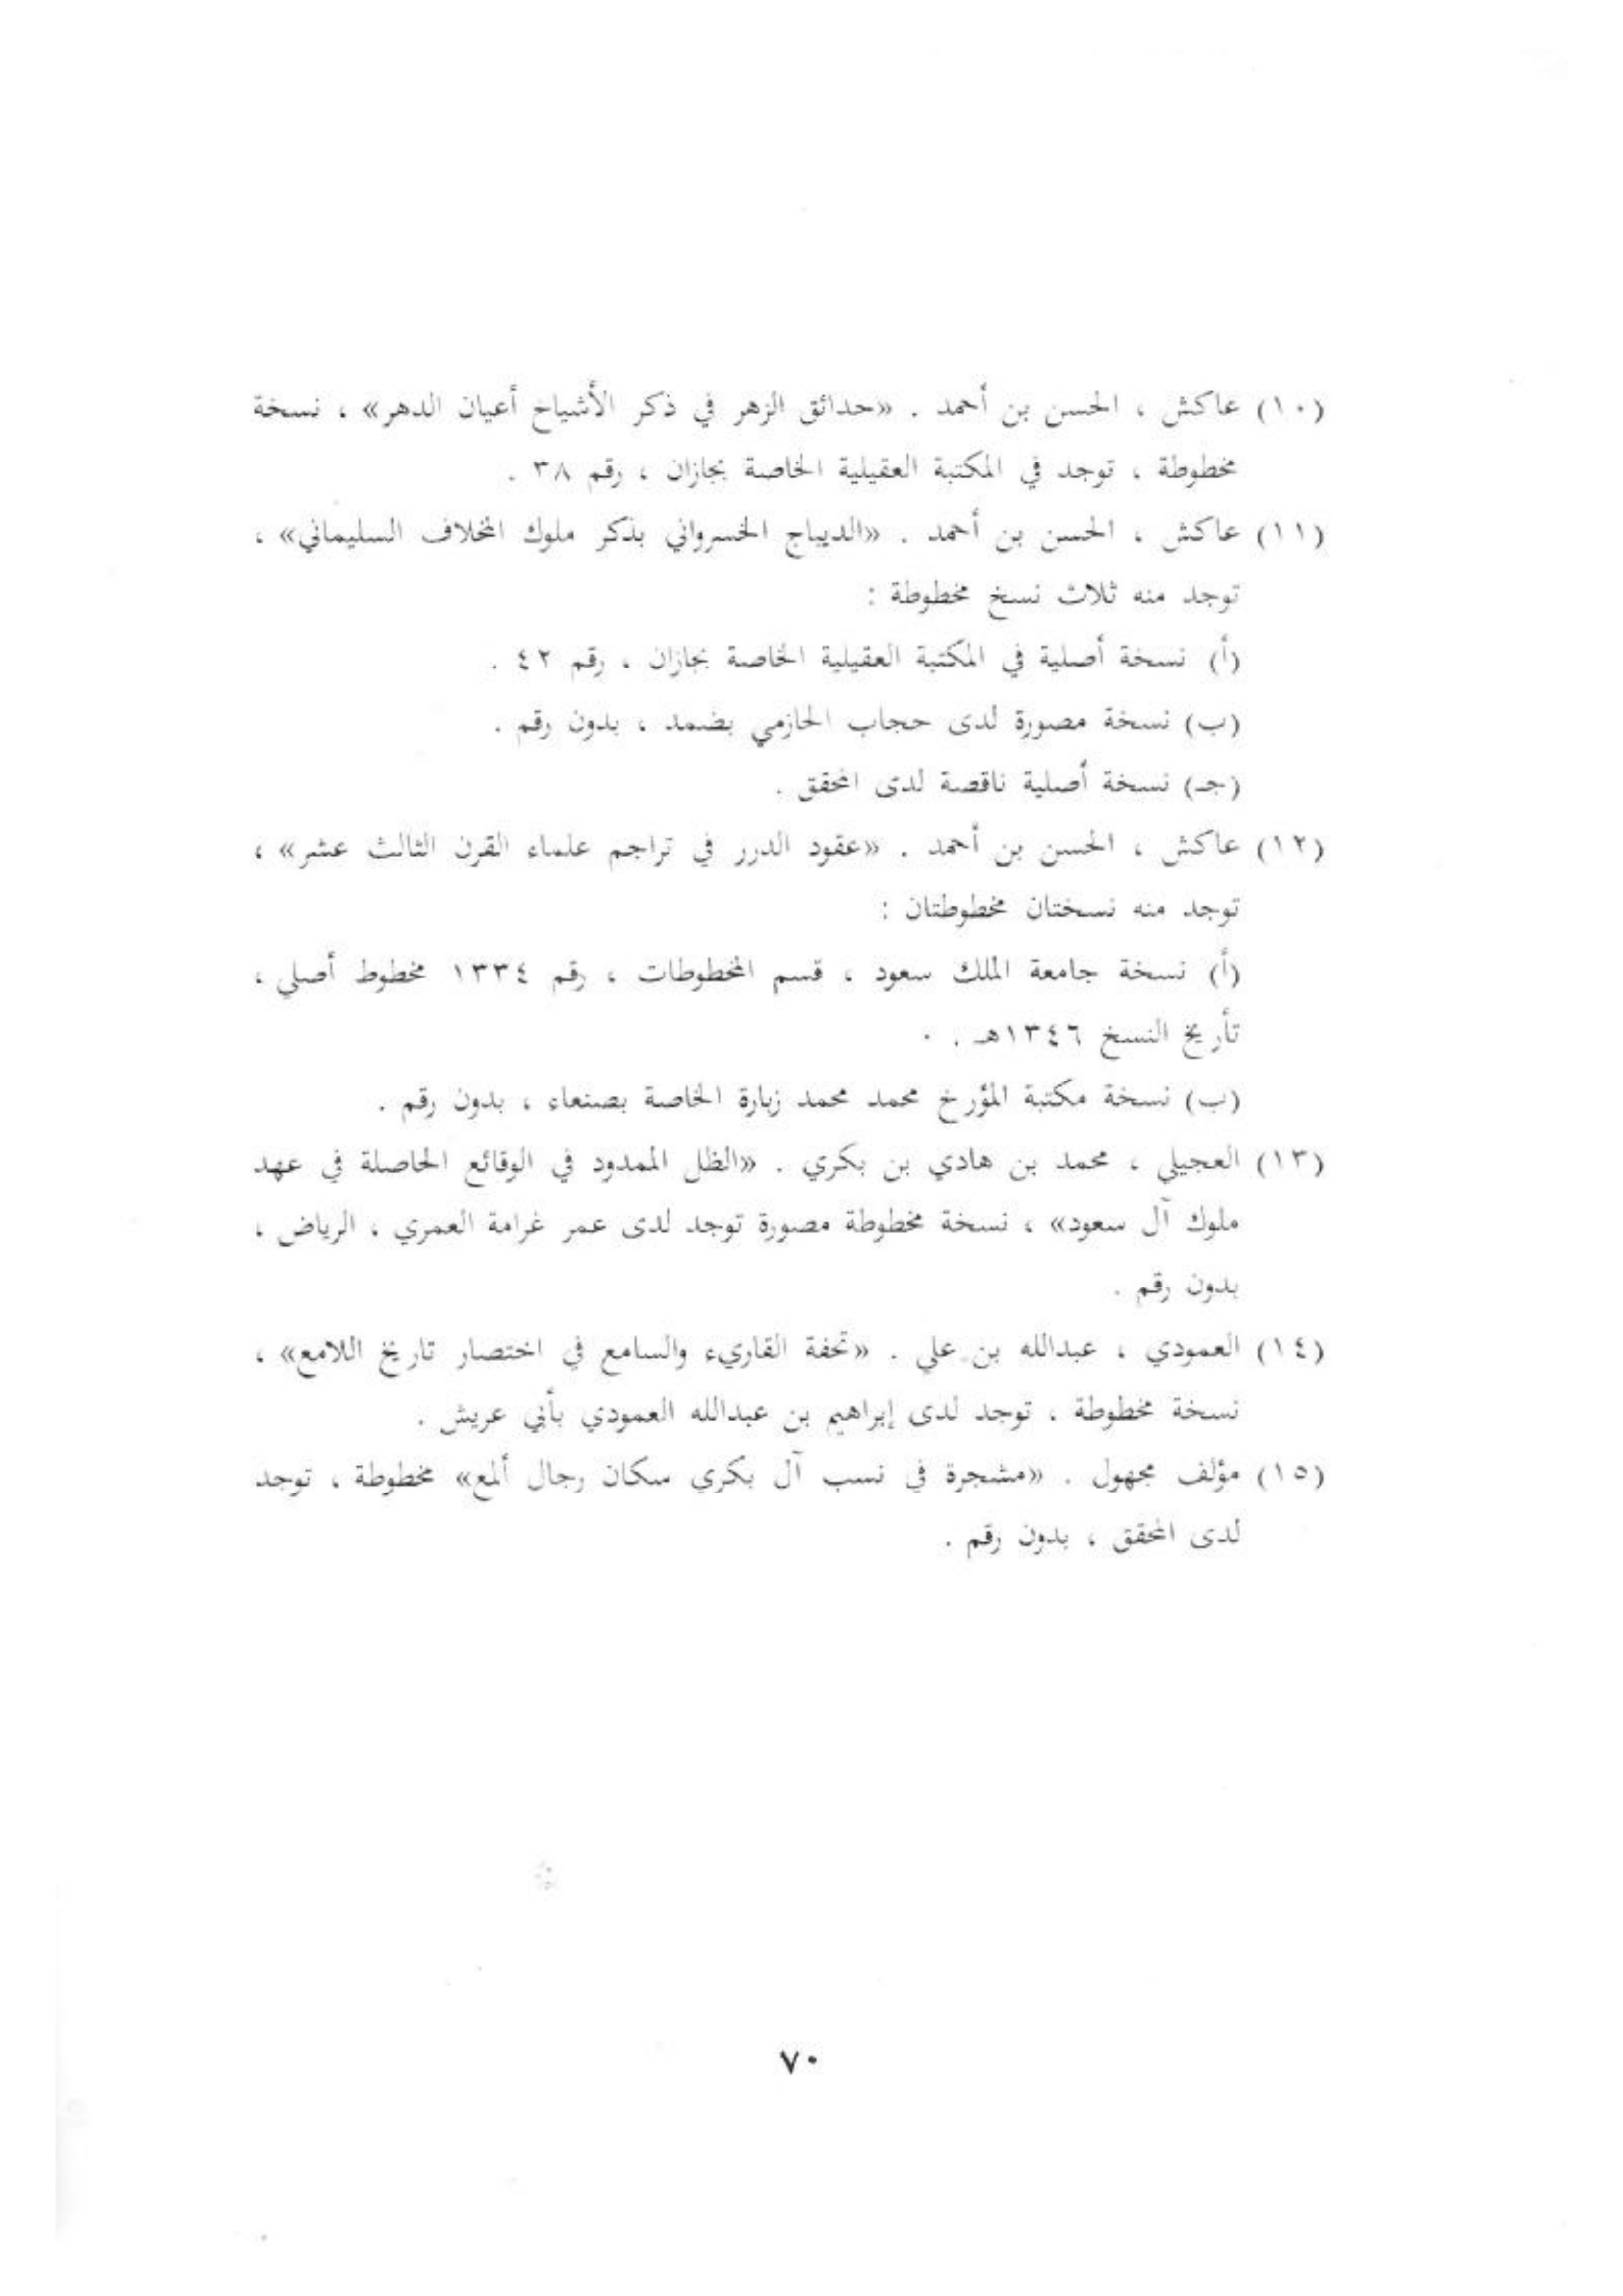 (١٠) عاكش ، الحسن بن أحمد . «حدائق الزهر في ذكر الأشياخ أعيان الدهر» ، نسخة
مخطوطة ، توجد في المكتبة العقيلية الخاصة بجازان ، رقم ٣٨ .
(١١) عاكش ، الحسن بن أحمد . «الديباج الخسرواني بذكر ملوك المخلاف السليماني» ،
توجد منه ثلاث نسخ مخطوطة :
(أ) نسخة أصلية في المكتبة العقيلية الخاصة بجازان ، رقم ٤٢ .
(ب) نسخة مصورة لدى حجاب الحازمي بضمد ، بدون رقم .
(جـ) نسخة أصلية ناقصة لدى المحقق .
(١٢) عاكش ، الحسن بن أحمد . «عقود الدرر في تراجم علماء القرن الثالث عشر» ،
توجد منه نسختان مخطوطتان :
(أ) نسخة جامعة الملك سعود ، قسم المخطوطات ، رقم ١٣٣٤ مخطوط أصلي ،
تأريخ النسخ ١٣٤٦هـ .
(ب) نسخة مكتبة المؤرخ محمد محمد زبارة الخاصة بصنعاء ، بدون رقم .
(١٣) العجيلي ، محمد بن هادي بن بكري . «الظل الممدود في الوقائع الحاصلة في عهد
ملوك آل سعود» ، نسخة مخطوطة مصورة توجد لدى عمر غرامة العمري ، الرياض ،
بدون رقم .
(١٤) العمودي ، عبدالله بن علي . «تحفة القاريء والسامع في اختصار تاريخ اللامع» ،
نسخة مخطوطة ، توجد لدى إبراهيم بن عبدالله العمودي بأبي عريش .
(١٥) مؤلف مجهول . «مشجرة في نسب آل بكري سكان رجال ألمع» مخطوطة ، توجد
لدى المحقق ، بدون رقم .
٧٠